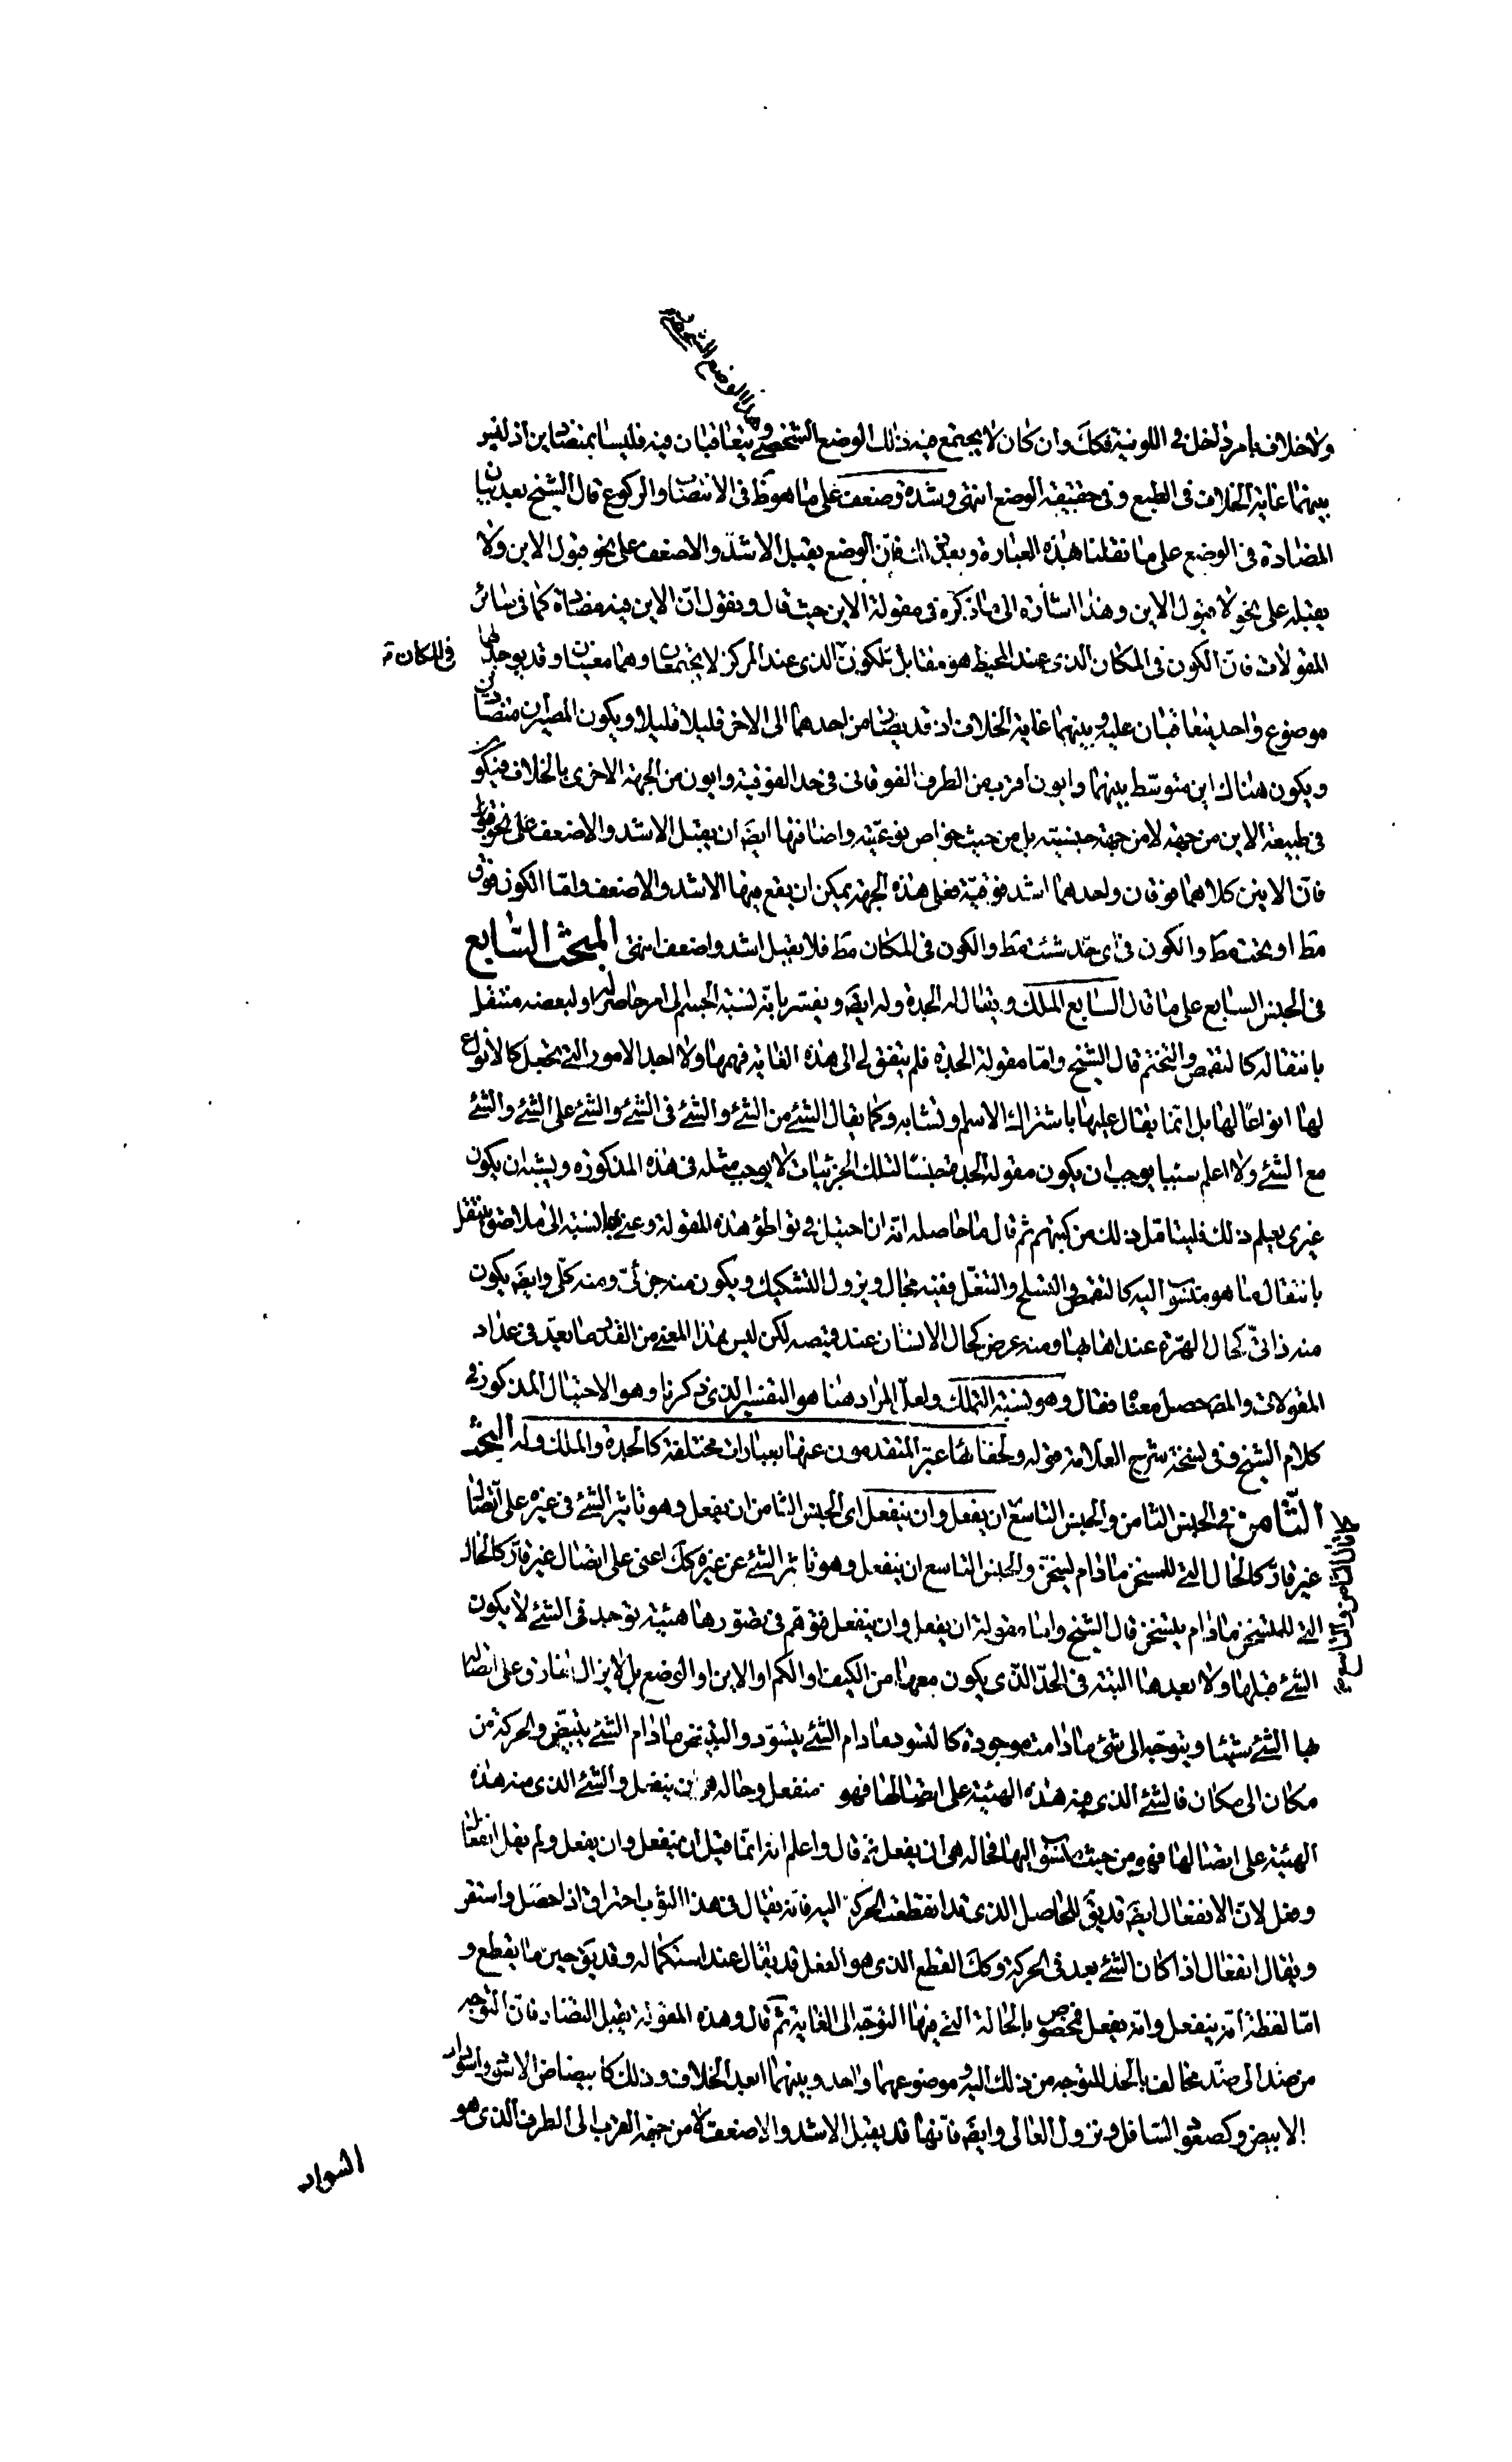 وذلك الوضع الشخصي
ولا خلاف بأمر داخل في اللونية فكك وان كان لا يجتمع فيه ذلك الوضع الشخصي ويتعاقبان فيه فليسا بمتضادين اذ ليس
بينهما غاية الخلاف في الطبع وفي حقيقة الوضع انتهى وشدة وضعف على ما هو ظ في الانتصاب والركوع قال الشيخ بعد بيان
المضادة في الوضع على ما نقلنا هذه العبارة وبعد ذلك فان الوضع يقبل الاشد والاضعف على نحو قبول الاين ولا
يقبله على نحو لا قبول الاين وهذا اشارة الى ما ذكره في مقولة الاين حيث قال ونقول ان الاين فيه مضادة كما في سائر
المقولات فان الكون في المكان الذي عند المحيط هو مقابل للكون الذي عند المركز لا يجتمعان وهما معنيان وقد يوجد لهما
في المكان
موضوع واحد يتعاقبان عليه وبينهما غاية الخلاف اذ قد يصار من احدهما الى الاخر قليلا قليلا ويكون المصيران متضادين
ويكون هناك اين متوسط بينهما وايون اقرب من الطرف الفوقاني في حد الفوقية وايون من الجهة الاخرى بالخلاف فيكون
في طبيعة الاين من جهة لا من جهة جنسيته بل من حيث خواص نوعيته واضافتها ايضا ان يقبل الاشد والاضعف على نحو قبول
فان الاينين كلاهما فوقان واحدهما اشد فوقية فعلى هذه الجهة يمكن ان يقع فيها الاشد والاضعف واما الكون فوق
مط او تحت مط والكون في اي حد شئت مط والكون في المكان مط فلا يقبل اشد واضعف انتهى المبحث السابع
في الجنس السابع على ما قال السابع الملك ويقال له الجدة وله ايضا ويفسر بانه نسبة الجسم الى امر حاصر له او لبعضه منتقل
بانتقاله كالتقمص والتختم قال الشيخ واما مقولة الجدة فلم يتفق لي الى هذه الغاية فهمها ولا احد الامور التي يجعل كالانواع
لها انواعا لها بل انما يقال عليها باشتراك الاسم وتشابه وكما يقال الشئ من الشئ والشئ في الشئ والشئ على الشئ والشئ
مع الشئ ولا اعلم سببا يوجب ان يكون مقولة الجدة جنسا لتلك الجزئيات لا يوجب مثله في هذه المذكورة ويشبه ان يكون
غيري يعلم ذلك فليتامل ذلك من كتبهم ثم قال ما حاصله انه ان احتيل في تواطؤ هذه المقولة وعني بها نسبة الى ملاصق ينتقل
بانتقال ما هو منسوب اليه كالتقمص والتسلح والتنعل وفيه مجال ويزول التشكيك ويكون منه جزئي ومنه كلي وايضا يكون
منه ذاتي كحال الهرة عند اهابها ومنه عرض كحال الانسان عند قميصه لكن ليس بهذا المعنى من القدر ما يعد في عداد
المقولات والمص حصل معنا فقال وهو نسبة التملك ولعل المراد هنا هو التفسير الذي ذكرنا وهو الاحتيال المذكور في
كلام الشيخ وفي نسخة شرح العلامة قوله ولخفائها عبر المتقدمون عنها بعبارات مختلفة كالجدة والملك وله البحث
الثامن في الجنس الثامن والجنس التاسع ان يفعل وان ينفعل اى الجنس الثامن ان يفعل وهو تاثير الشئ في غيره على اتصال
قال الثامن والتاسع
غير قار كالحال التي للمسخن ما دام يسخن والجنس التاسع ان ينفعل وهو تاثر الشئ عن غيره كك اعني على اتصال غير قار كالحال
التي للمتسخن ما دام يتسخن قال الشيخ واما مقولة ان يفعل وان ينفعل فتوهم في تصورها هيئة توجد في الشئ لا يكون
الشئ قبلها ولا بعدها البتة في الحد الذي يكون معها من الكيف او الكم او الاين او الوضع بل لا يزال يفارق على اتصالها
بها الشئ شيئا ويتوجه الى شئ ما دامت موجودة كالتسود ما دام الشئ يتسود والتبيض ما دام الشئ يتبيض والحركة من
مكان الى مكان فالشئ الذي فيه هذه الهيئة على اتصالها فهو منفعل وحاله هو ان ينفعل والشئ الذي منه هذه
الهيئة على اتصالها فهو من حيث منسوب اليها فحاله هي ان يفعل ثم قال واعلم انه انما قيل ان ينفعل وان يفعل ولم يقل انفعال
وفعل لان الانفعال ايضا قد يق للحاصل الذي قد انقطعت الحركة اليه فانه يقال في هذا الثوب احتراق اذا حصل واستقر
ويقال انفعال اذا كان الشئ بعد في الحركة وكك القطع الذي هو الفعل قد يقال عند استكماله وقد يق حين ما يقطع و
اما لفظة انه ينفعل وانه يفعل فمخصوص بالحالة التي فيها التوجه الى الغاية ثم قال وهذه المقولة يقبل التضاد فان التوجه
من ضد الى ضد مخالف بالحد للتوجه من ذلك اليه وموضوعهما واحد وبينهما ابعد الخلاف وذلك كابيضاض الاسود واسوداد
الابيض وكصعود السافل ونزول العالي وايضا فانها قد يقبل الاشد والاضعف لا من جهة القرب الى الطرف الذي هو
السواد